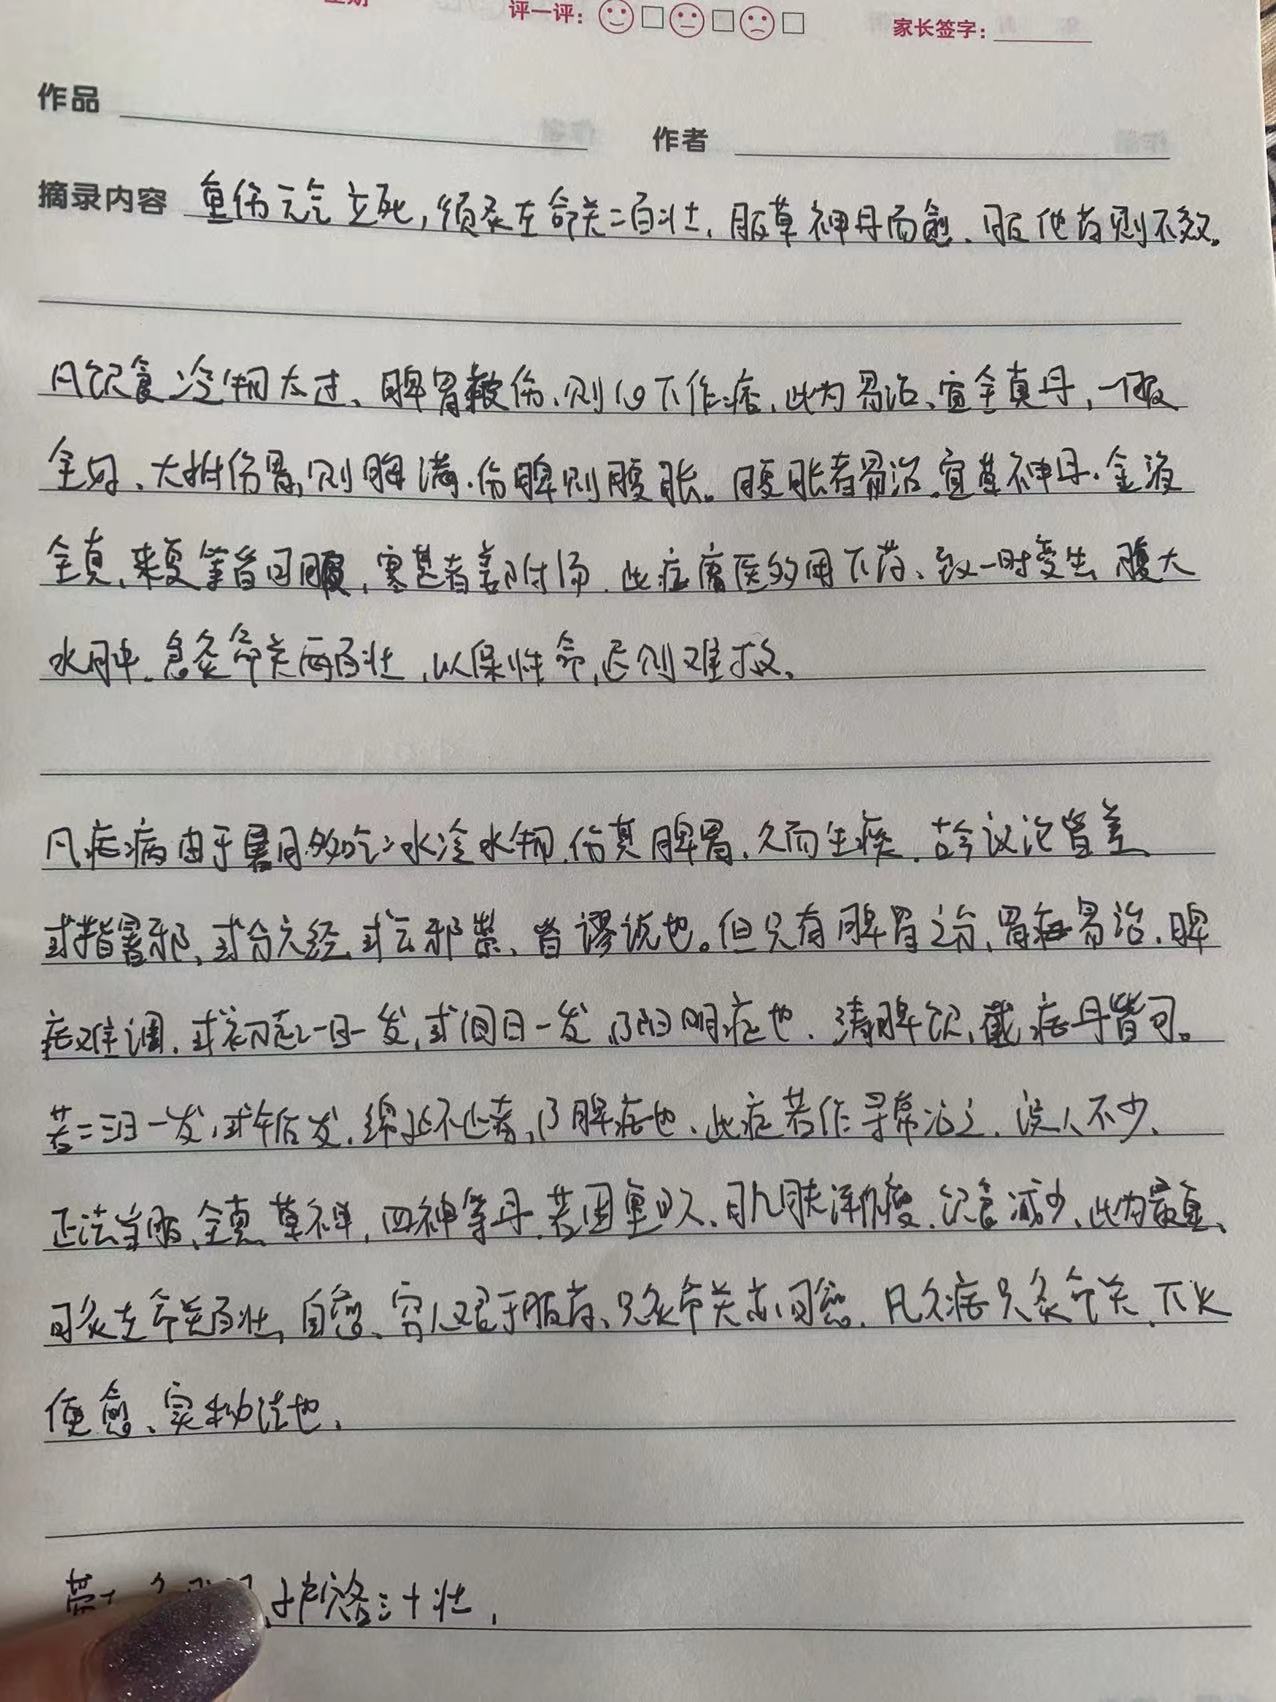 评一评：
家长签字：
作品
作者
摘录内容 重伤元气立死，须灸左命关二百壮，服草神丹而愈、服他药则不效。
凡饮食冷物太过、脾胃被伤、则心下作痞、此为易治、宜全真丹，一服
全好、大抵伤胃则胸满、伤脾则腹胀。腹胀者易治、宜草神丹、金液
全真、来复等皆可服，寒甚者姜附汤、此症庸医多用下药、致一时变生、腹大
水肿、急灸命关两百壮，以保性命，迟则难救。
凡疟病由于暑月多吃冰水冷水物、伤其脾胃、久而生痰、古今议论皆差、
或指暑邪、或分六经、或云邪祟、皆谬说也。但只有脾胃之分、胃疟易治、脾
疟难调、或初起一日一发，或间日一发，乃阳明疟也、清脾饮、截疟丹皆可。
若二三日一发，或午后发、绵延不止者，乃脾疟也、此症若作寻常治之、误人不少、
正法当服、全真、草神、四神等丹、若困重日久、肌肤渐瘦、饮食减少、此为最重、
可灸左命关百壮，自愈、穷人艰于服药、只灸命关亦可愈、凡久疟只灸命关、下火
便愈、实秘法也、
三十壮、